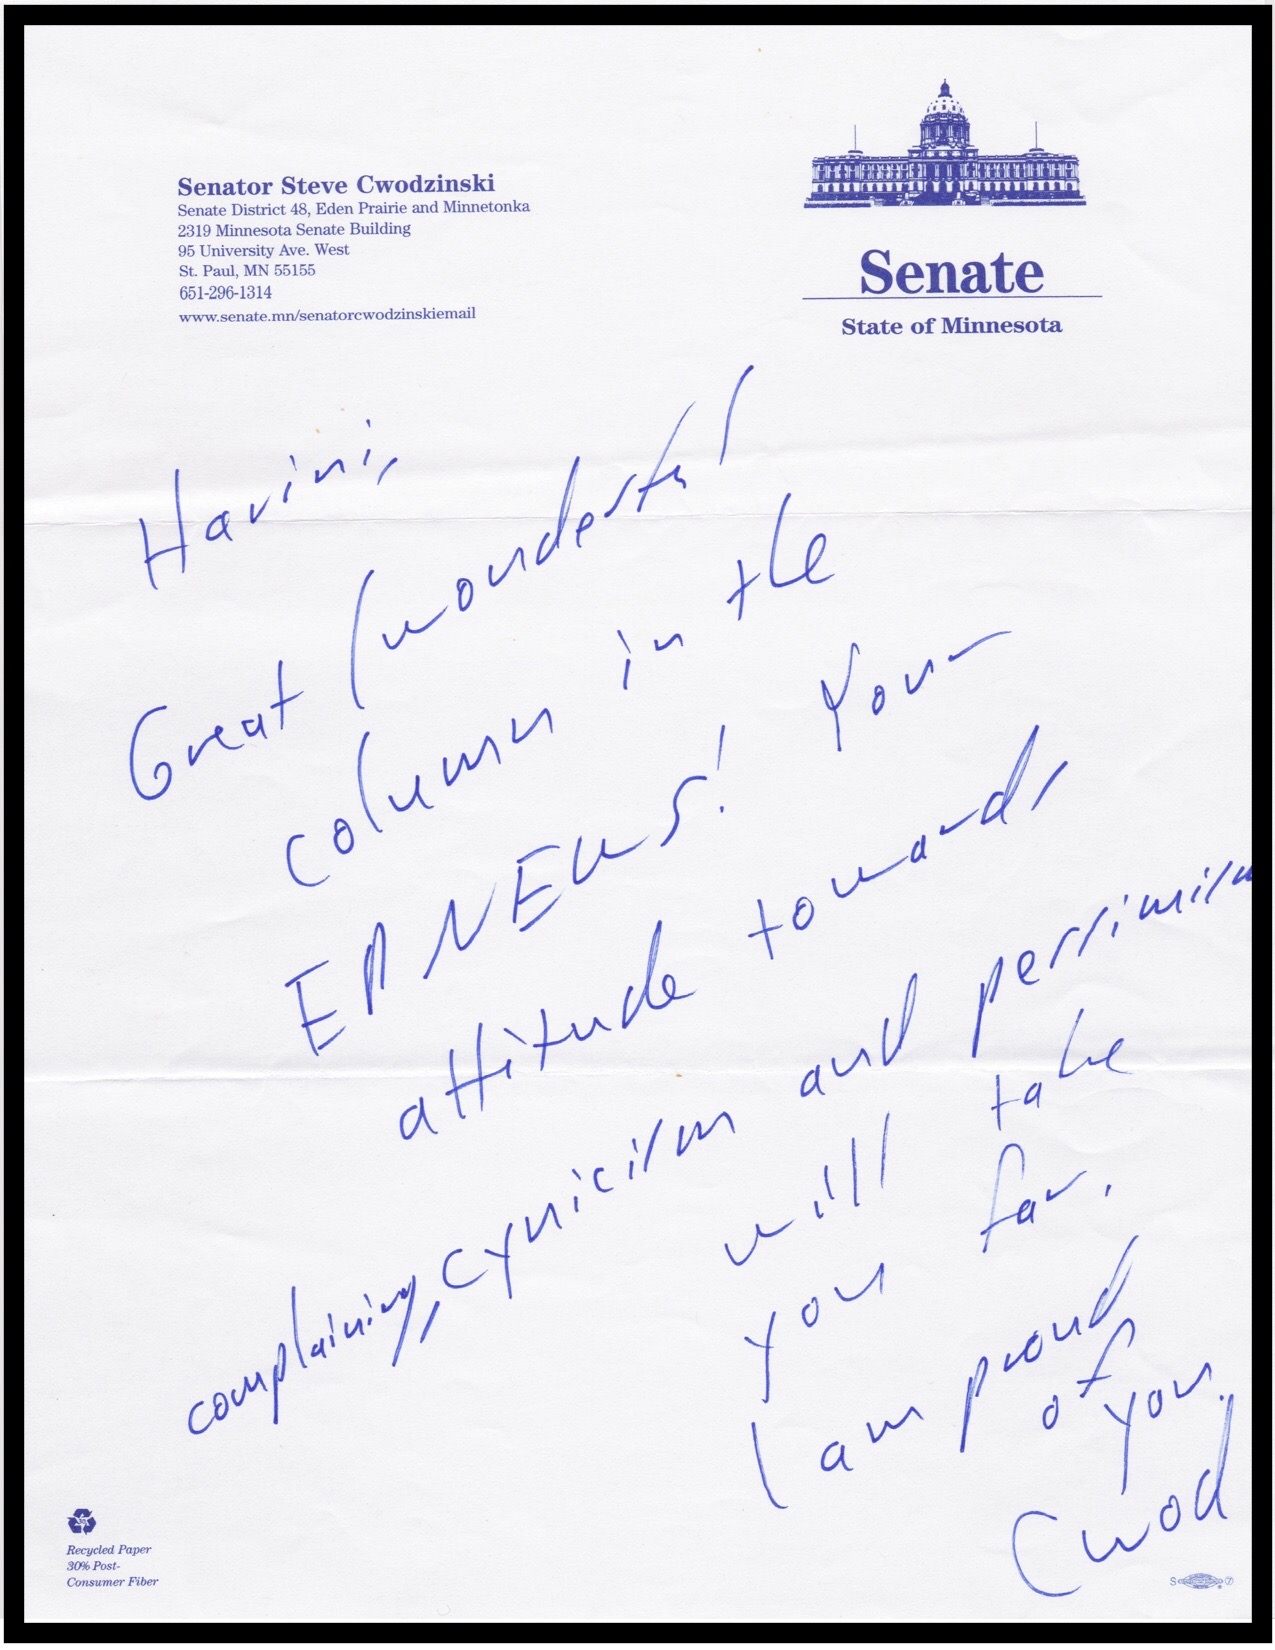 Senator Steve Cwodzinski
Senate District 48, Eden Prairie and Minnetonka
2319 Minnesota Senate Building
95 University Ave. West
St. Paul, MN 55155
651-296-1314
www.senate.mn/senatorcwodzinskiemail
Senate
State of Minnesota
Great (wonderful)
column in the
EP NEWS! Your
attitude towards
complaining, cynicism and pessimism
will take
you far.
I am proud
of
you.
Cwod
Recycled Paper
30% Post-
Consumer Fiber